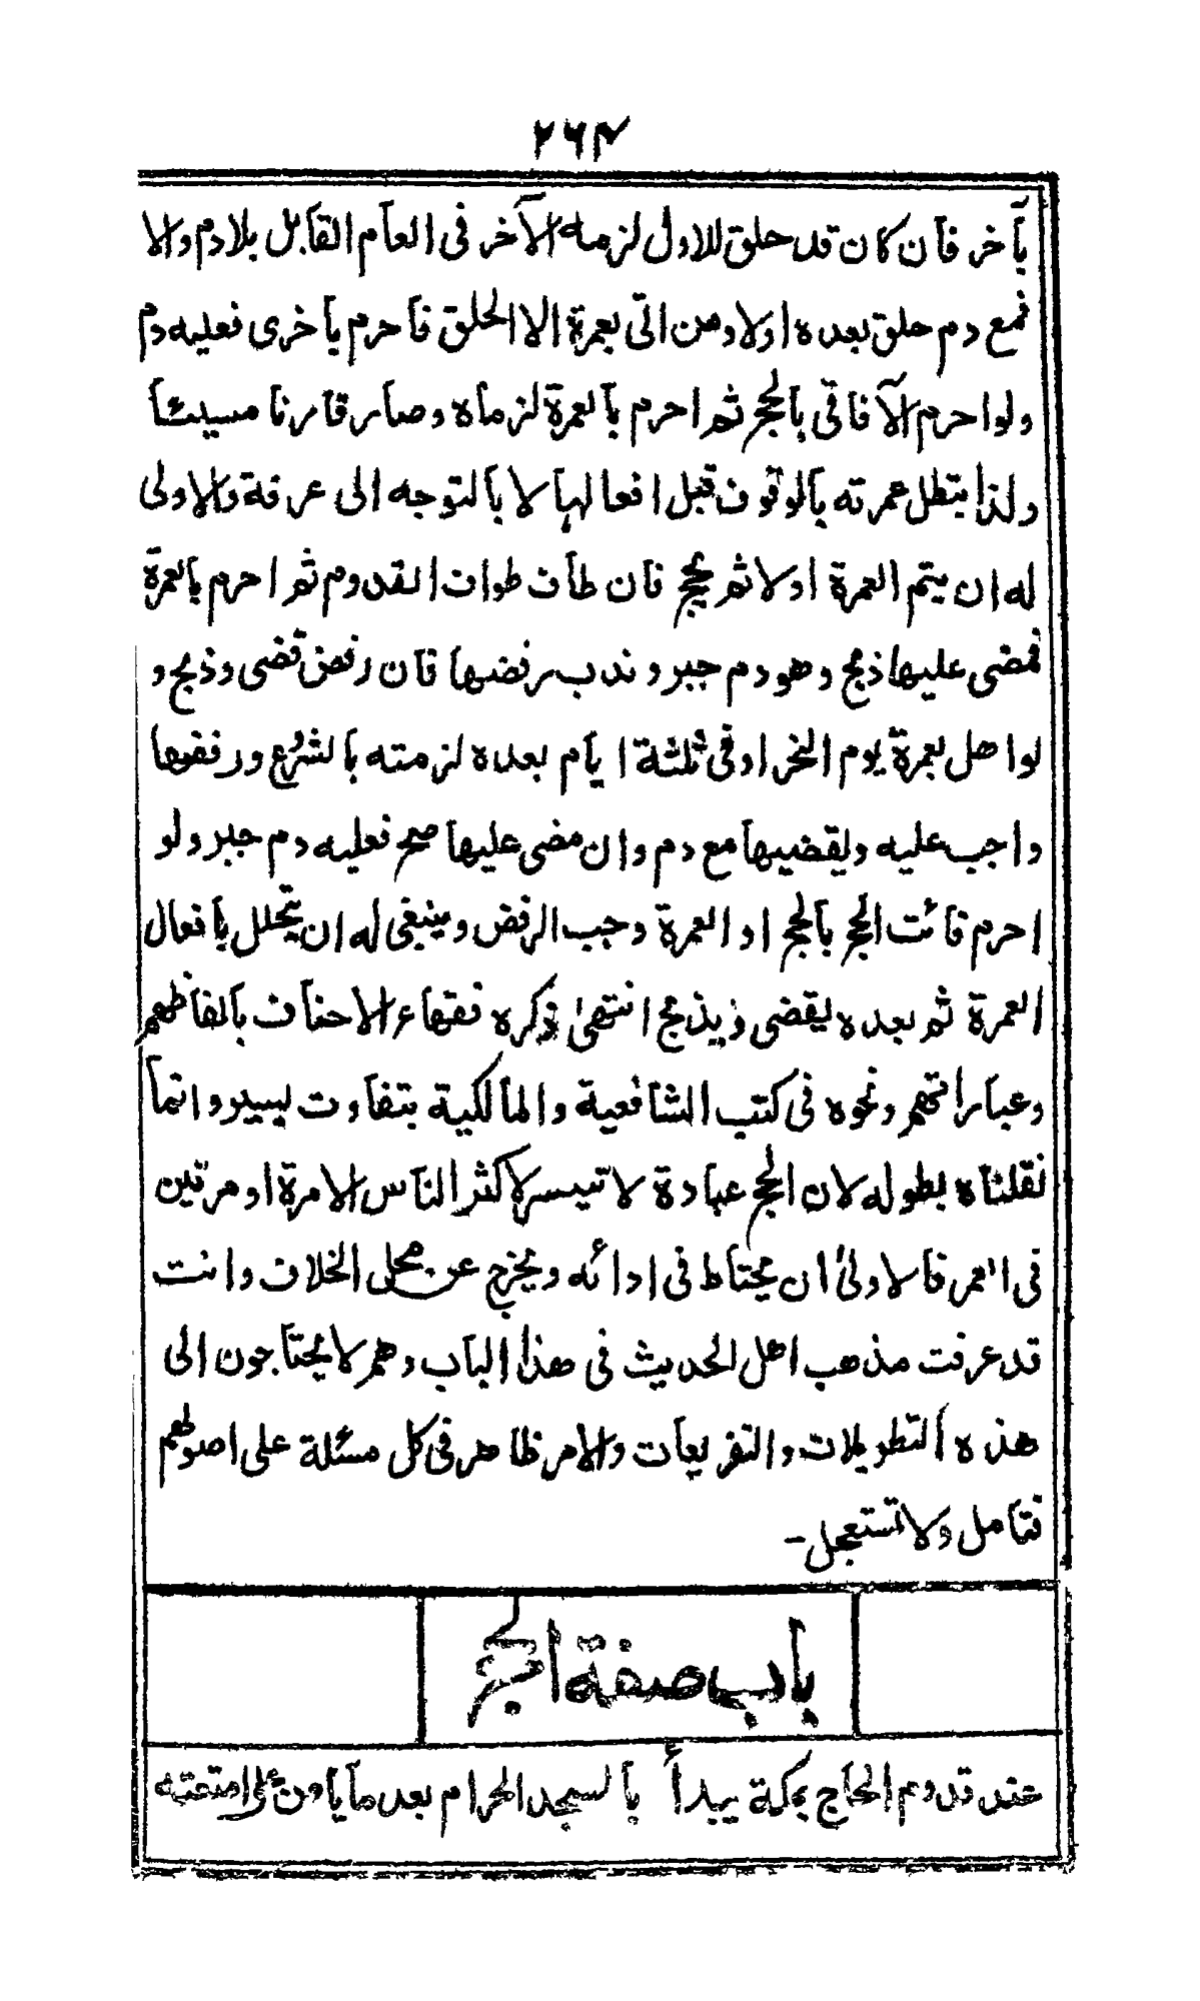 ۲۶۴
بآخر فان كان قد حلق للاول لزمه الآخر فى العام القابل بلا دم والا
فمع دم حلق بعده اولا ومن اتى بعمرة الا الحلق فاحرم باخرى فعليه دم
ولو احرم الآفاقى بالحج ثم احرم بالعمرة لزماه وصار قارنا مسيئا
ولذا بتطل عمرته بالوقوف قبل افعالها لا بالتوجه الى عرفة والاولى
له ان يتم العمرة اولا ثم يحج فان طاف طواف القدوم ثم احرم بالعمرة
فمضى عليها ذبح وهو دم جبر و ندب رفضها فان رفض قضى وذبح و
لو اهل بعمرة يوم النحر او فى ثلثة ايام بعده لزمته بالشرع ورفضها
واجب عليه وليقضيها مع دم وان مضى عليها صح فعليه دم جبر ولو
احرم فائت الحج بالحج او العمرة وجب الرفض وينبغى له ان يتحلل بافعال
العمرة ثم بعده ليقضى و يذبح انتهىٰ ذكره فقهاء الاحناف بالفاظهم
وعباراتهم ونحوه فى كتب الشافعية والمالكية بتفاوت يسير وانما
نقلناه بطوله لان الحج عبادة لا تيسر لاكثر الناس الا مرة او مرتين
فى العمر فالاولىٰ ان يحتاط فى ادائه ويخرج عن محل الخلاف وانت
قد عرفت مذهب اهل الحديث فى هذا الباب وهم لا يحتاجون الى
هذه التطويلات والتفريعات والامر ظاهر فى كل مسئلة على اصولهم
فتامل ولا تستعجل-
باب صفة الحج
عند قدوم الحاج بمكة يبدأ بالمسجد الحرام بعد ما يامن على امتعته